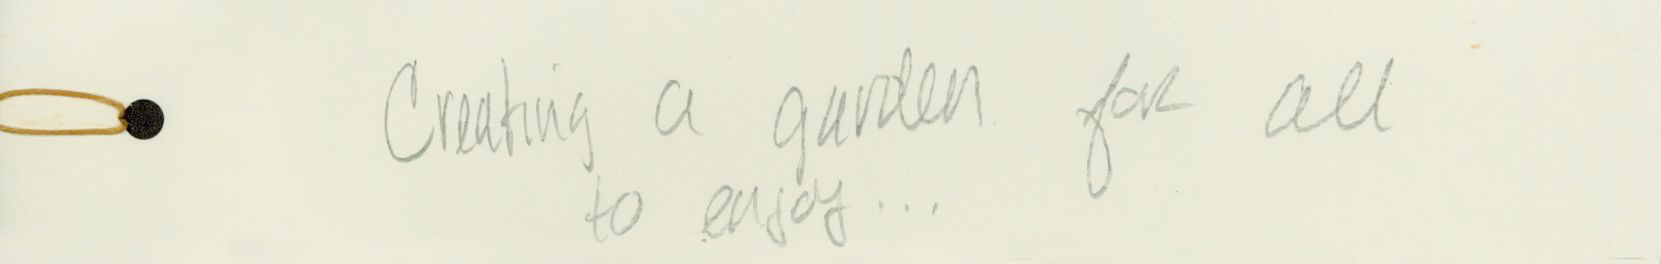 Creating a garden for all
to enjoy...